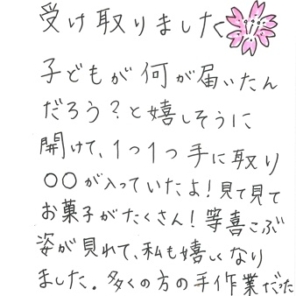 受け取りました
子どもが何が届いたん
だろう?と嬉しそうに
開けて、1つ1つ手に取り
○○が入っていたよ!見て見て
お菓子がたくさん!等喜こぶ
姿が見れて、私も嬉しくなり
ました。多くの方の手作業だった